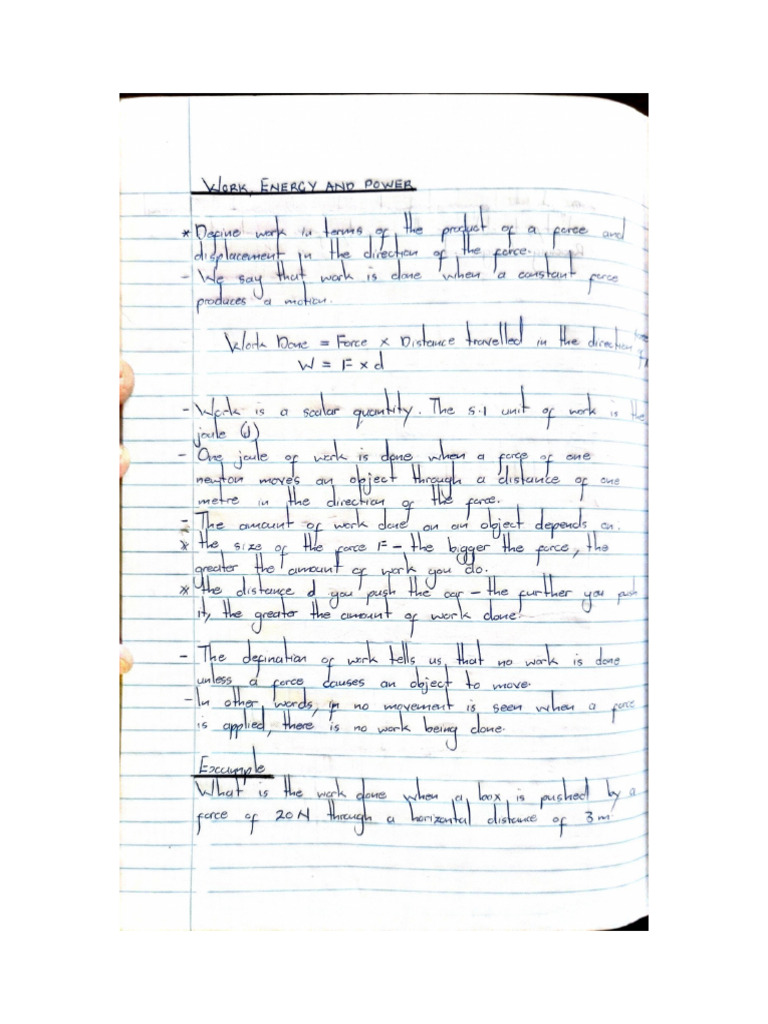 WORK, ENERGY AND POWER
* Define work in terms of the product of a force and
displacement in the direction of the force.
- We say that work is done when a constant force
produces a motion.
Work Done = Force x Distance travelled in the direction
W = F x d
- Work is a scalar quantity. The s.I unit of work is the
joule (J)
- One joule of work is done when a force of one
newton moves an object through a distance of one
metre in the direction of the force.
- The amount of work done on an object depends on:
* the size of the force F - the bigger the force, the
greater the amount of work you do.
* the distance d you push the car - the further you push
it, the greater the amount of work done.
- The defination of work tells us, that no work is done
unless a force causes an object to move.
- In other words, if no movement is seen when a force
is applied, there is no work being done.
Example
What is the work done when a box is pushed by a
force of 20N through a horizontal distance of 3m.